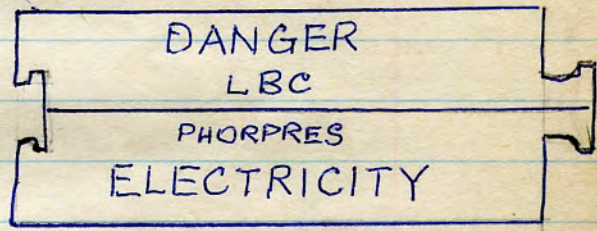 DANGER
LBC
PHORPRES
ELECTRICITY